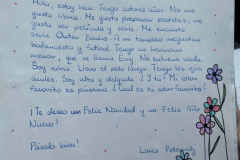 Hola, estoy bien. Tengo catorce años. No me
gusta libros. Me gusta preparar pasteles, me
gusta un película y serie. Me encanta
serie Outer Banks. A mi tampoco me gustan
baloncesto y fútbol. Tengo un hermano
menor, que se llama Eny. No estudian nada.
Soy rubia. Llevo el pelo largo. Tengo los ojos
azules. Soy alta y delgada. ¿Y tú? Mi color
favorito es púrpura. ¿Cuál es tu color favorito?
¡Te deseo un Feliz Navidad y un Feliz Año
Nuevo!
Pásalo bien!
Lana